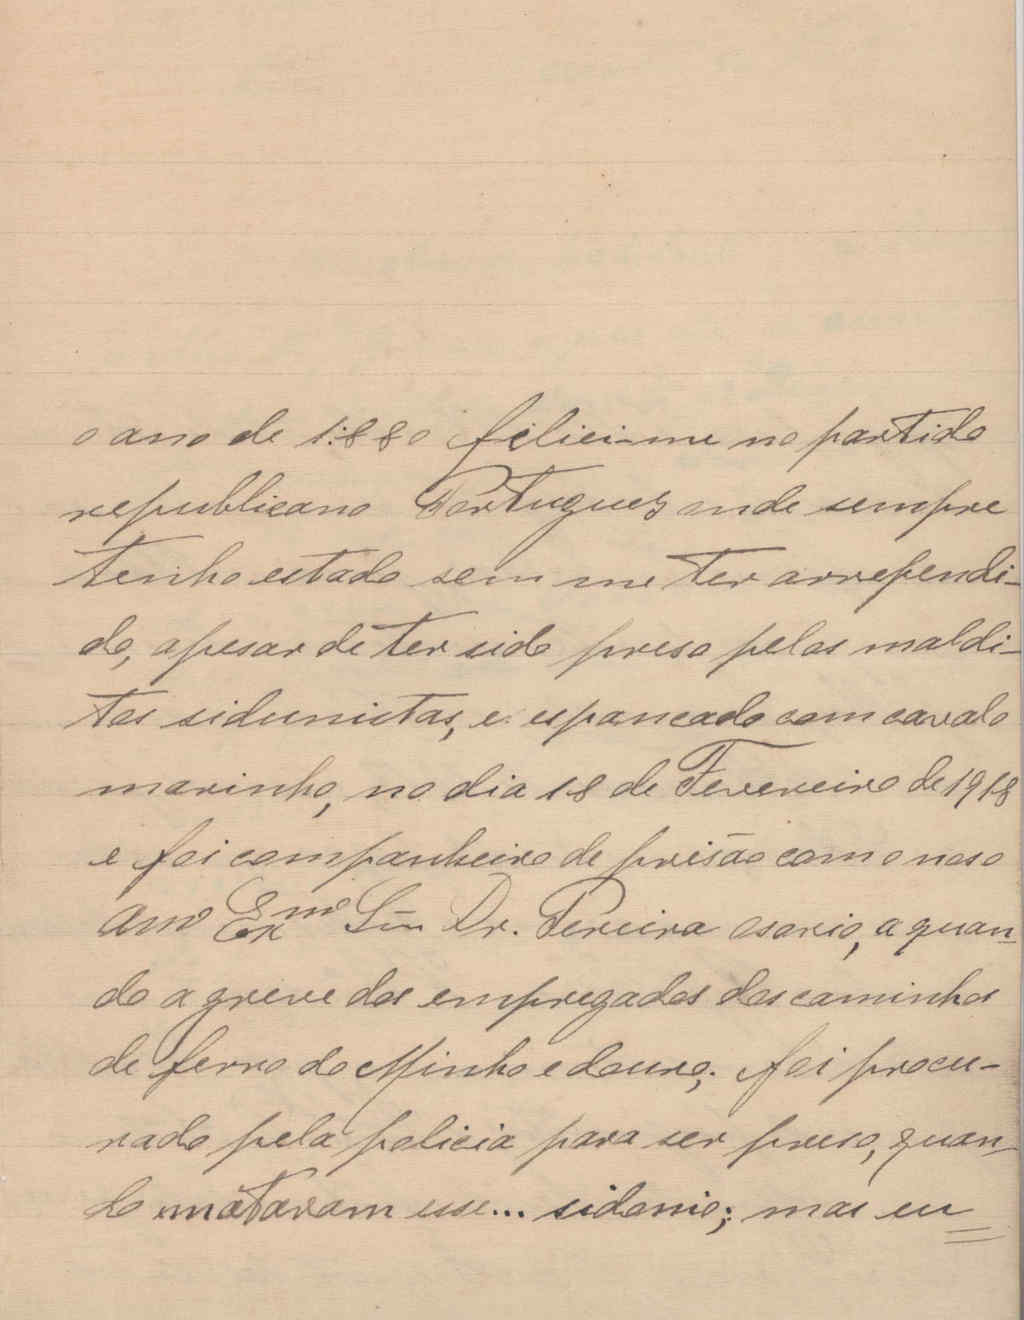 o ano de 1:880 felici-me no partido
republicano Portuguez onde sempre
tenho estado sem me ter arrependi-
do, apesar de ter sido preso pelos maldi-
tos sidunistas, e espancado com cavalo
marinho, no dia 18 de Fevereiro de 1918
e foi companheiro de prisão com o noso
Amº Exmº Sñr Dr. Pereira osorio, a quan-
do a greve dos empregados dos caminhos
de ferro do Minho e douro; foi procu-
rado pela policia para ser preso, quan-
do mataram esse... sidonio; mas eu